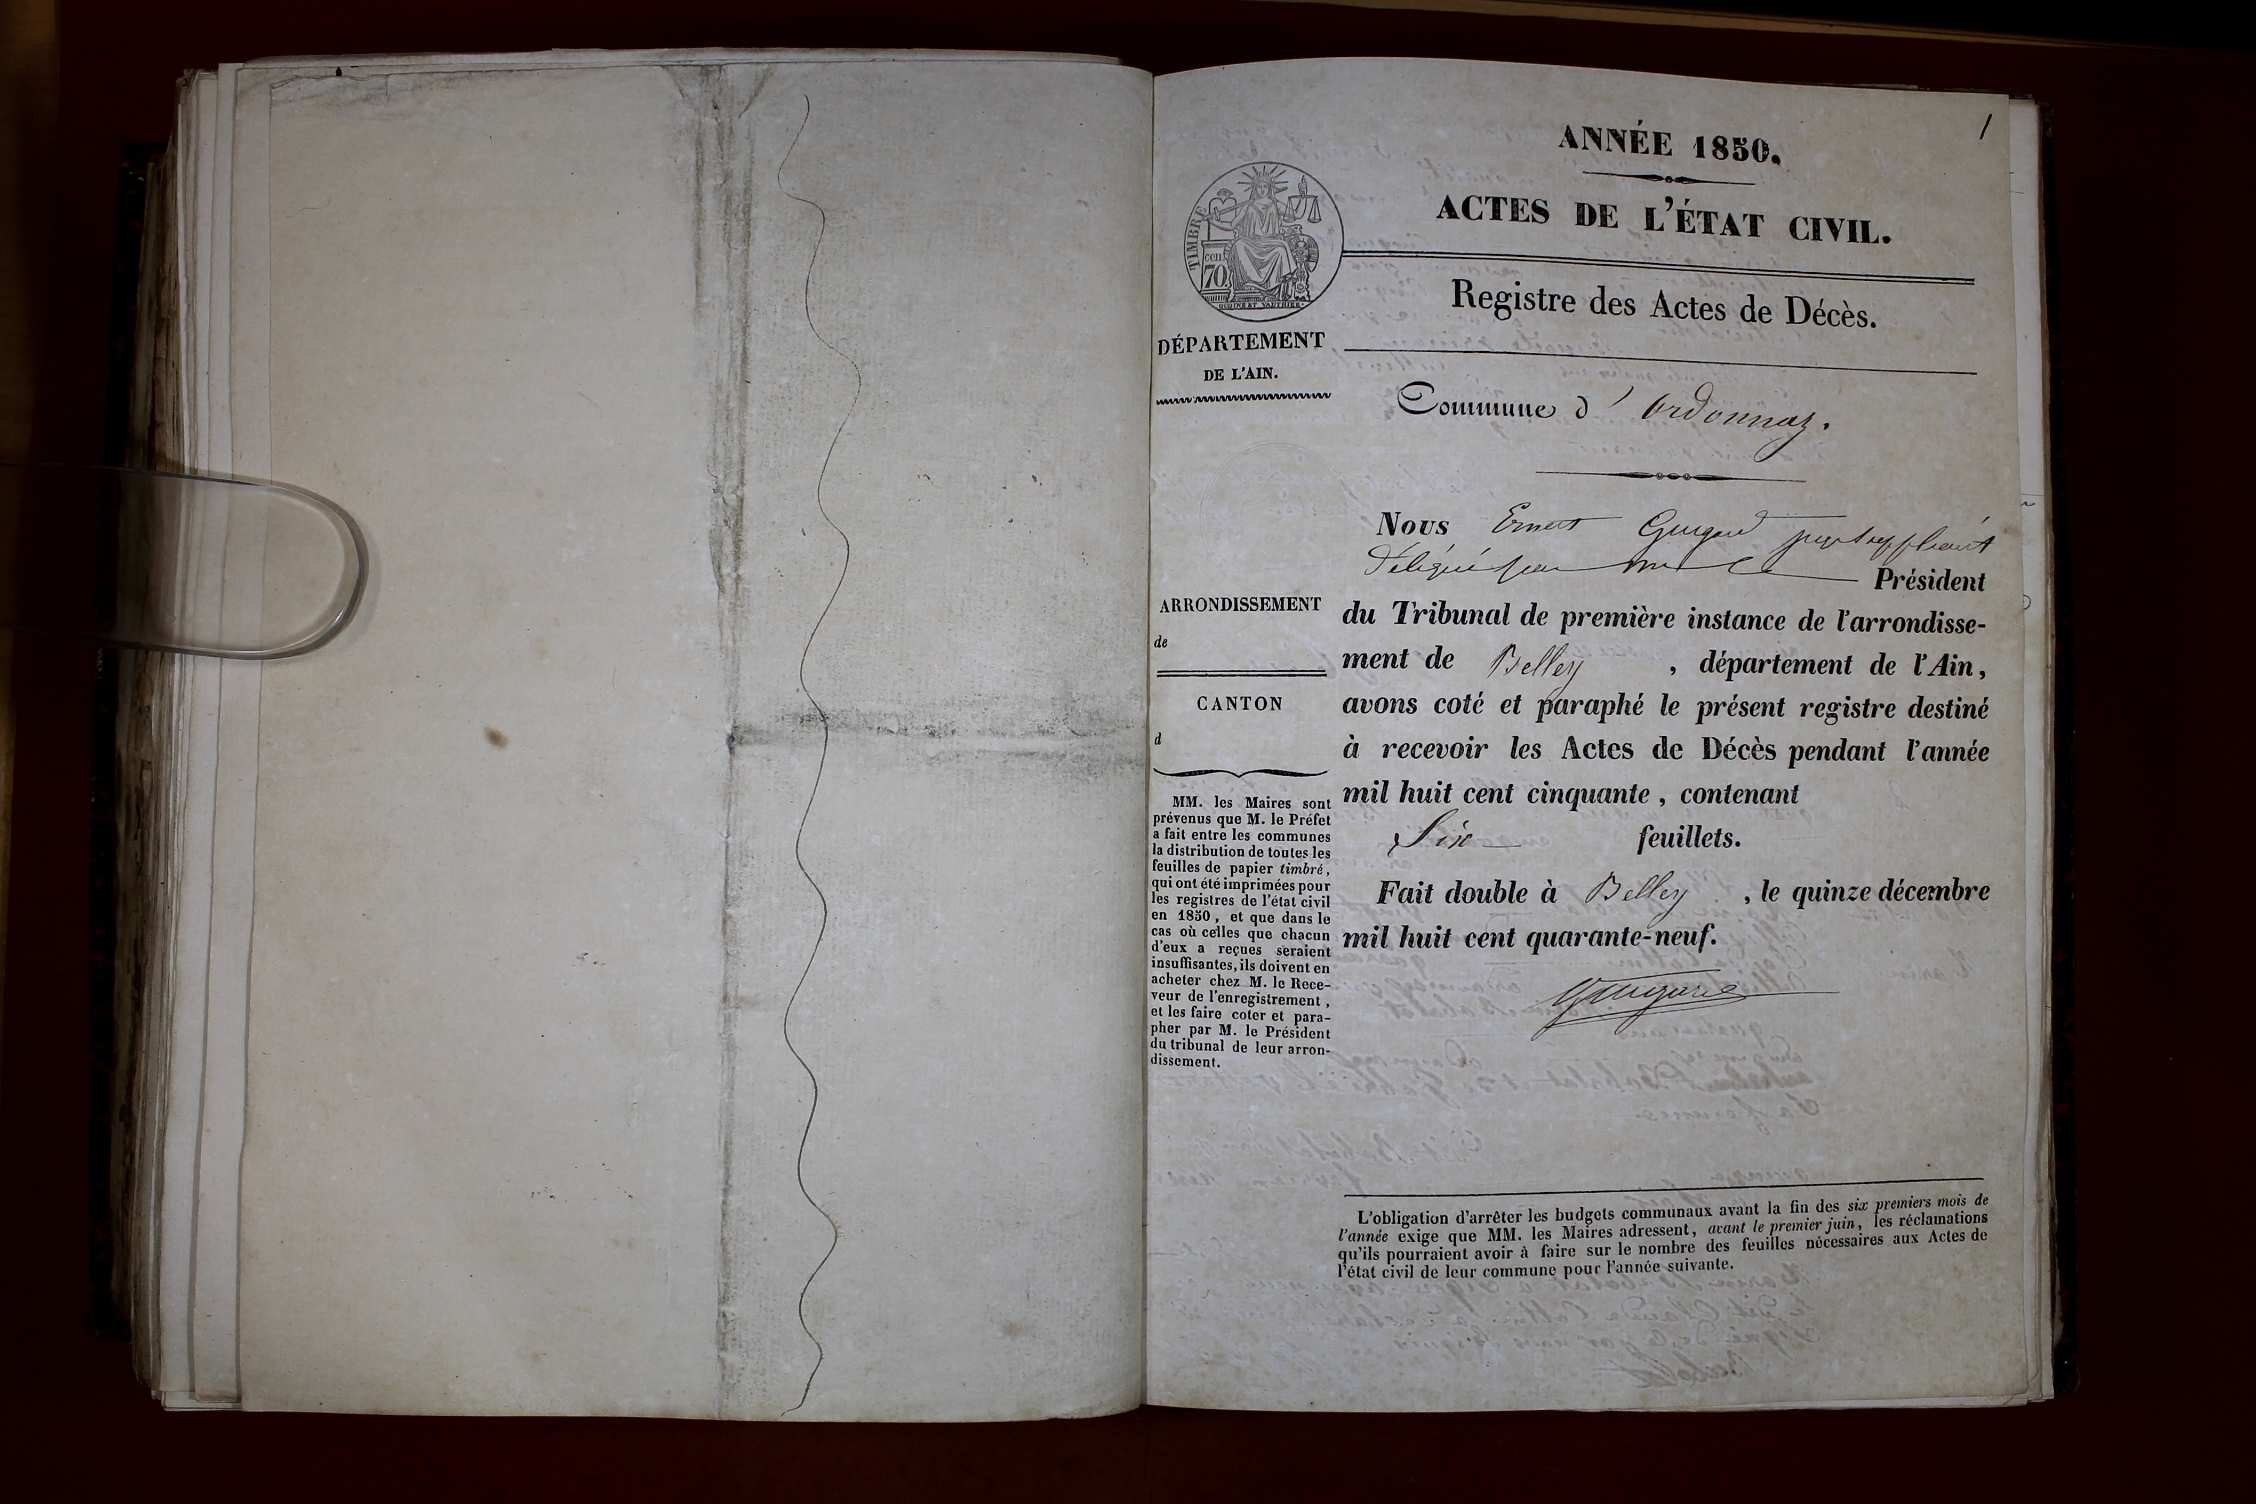 1
ANNÉE 1850.
ACTES DE L'ÉTAT CIVIL.
TIMBRE
cen.
70.
Registre des Actes de Décès.
DÉPARTEMENT
DE L'AIN.
Commune d' Ordonnaz.
Nous Ernest juge suppléant
Délégué par Mr le Président
du Tribunal de première instance de l'arrondisse-
ment de Belley , département de l'Ain,
avons coté et paraphé le présent registre destiné
à recevoir les Actes de Décès pendant l'année
mil huit cent cinquante, contenant
Six feuillets.
Fait double à Belley , le quinze décembre
mil huit cent quarante-neuf.
ARRONDISSEMENT
de
CANTON
d
MM. les Maires sont
prévenus que M. le Préfet
a fait entre les communes
la distribution de toutes les
feuilles de papier timbré,
qui ont été imprimées pour
les registres de l'état civil
en 1850, et que dans le
cas où celles que chacun
d'eux a reçues seraient
insuffisantes, ils doivent en
acheter chez M. le Rece-
veur de l'enregistrement,
et les faire coter et para-
pher par M. le Président
du tribunal de leur arron-
dissement.
L'obligation d'arrêter les budgets communaux avant la fin des six premiers mois de
l'année exige que MM. les Maires adressent, avant le premier juin, les réclamations
qu'ils pourraient avoir à faire sur le nombre des feuilles nécessaires aux Actes de
l'état civil de leur commune pour l'année suivante.